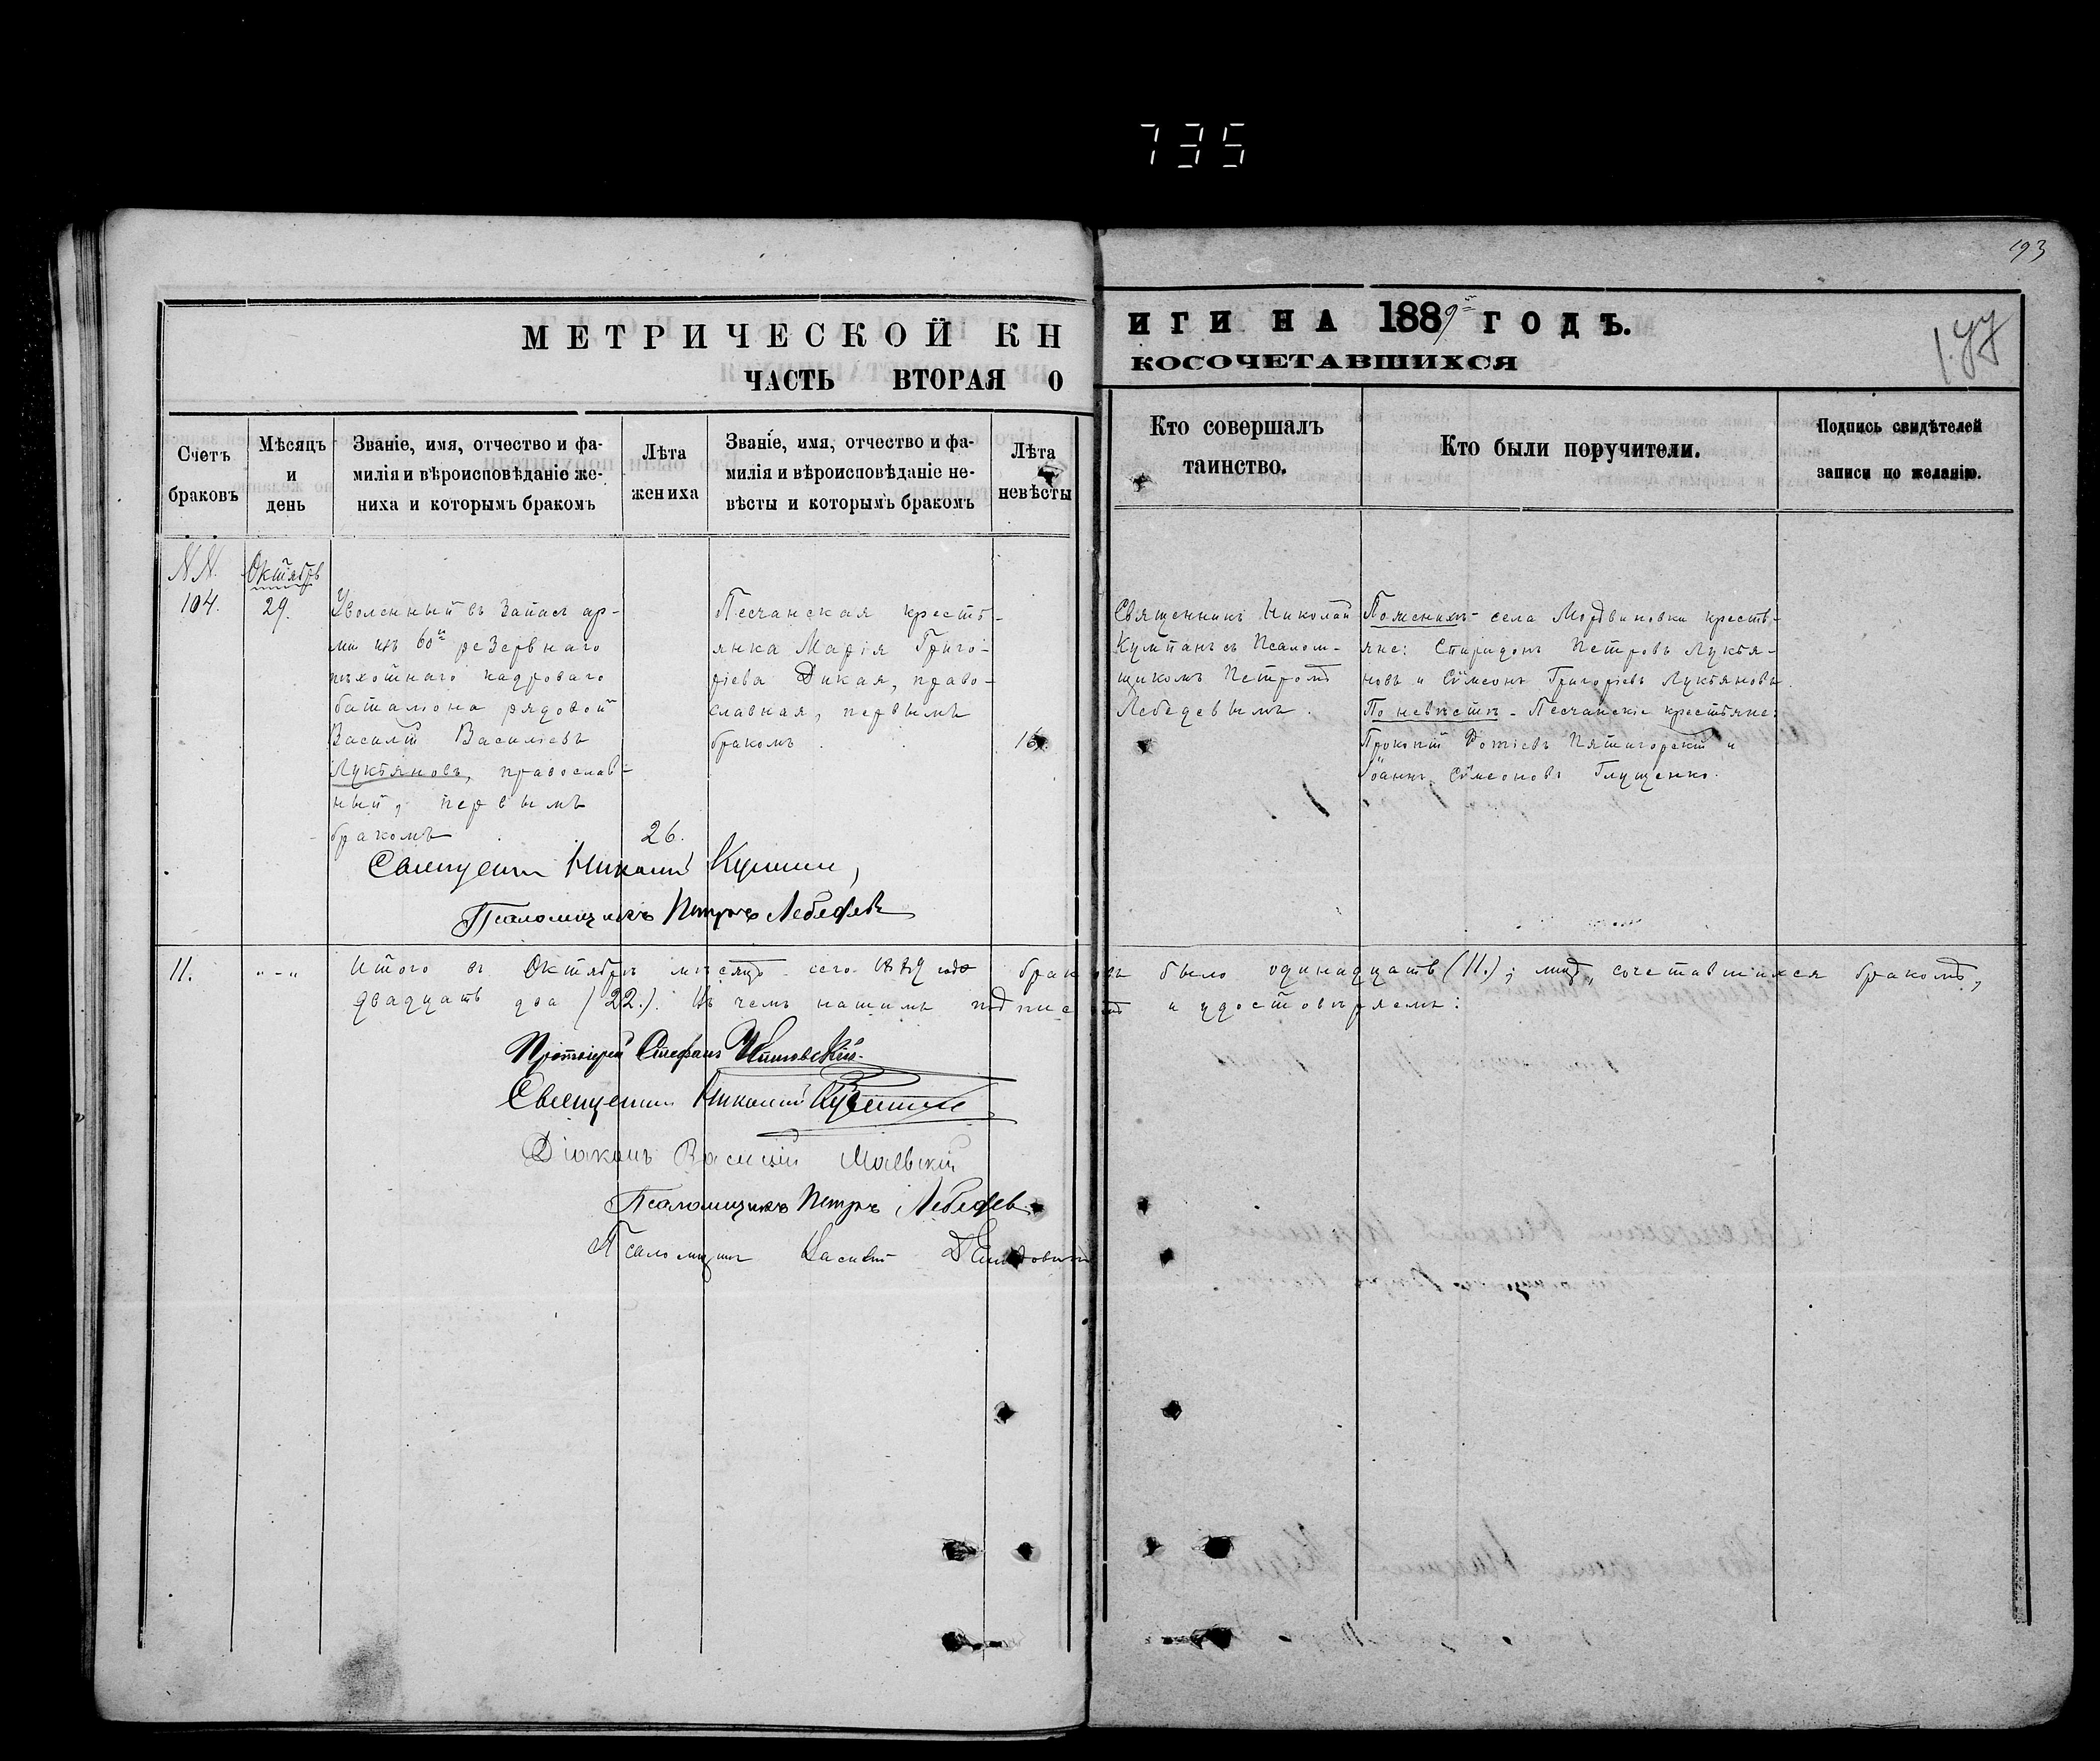 735
193
МЕТРИЧЕСКОЙ КНИГИ НА 1889й ГОДЪ.
ЧАСТЬ ВТОРАЯ О БРАКОСОЧЕТАВШИХСЯ
Счетъ
браковъ
Мѣсяцъ
и
день
Званіе, имя, отчество и фа-
милія и вѣроисповѣданіе же-
ниха и которымъ бракомъ
Лѣта
жениха
Званіе, имя, отчество и фа-
милія и вѣроисповѣданіе не-
вѣсты и которымъ бракомъ
Лѣта
невѣсты
Кто совершалъ
таинство.
Кто были поручители.
Подпись свидѣтелей
записи по желанію.
№№.
104.
Октябрь
29.
Уволенный въ запасъ ар-
міи изъ 60го резервнаго
пѣхотнаго кадроваго
баталіона рядовой
Василій Василіевъ
Лукьяновъ, православ-
ный, первымъ
бракомъ
26.
Песчанская кресть-
янка Марія Григо-
ріева Дикая, право-
славная, первымъ
бракомъ.
16.
Священникъ Николай
съ Псалом-
щикомъ Петромъ
Лебедевымъ.
По женихѣ - села Мордвиновки кресть-
яне: Спиридонъ Петровъ Лукья-
новъ и Сѵмеонъ Григоріевъ Лукьяновъ.
По невѣстѣ - Песчанскіе крестьяне:
Прокопій Фотіевъ Пятигорскій и
Іоаннъ Сѵмеоновъ Глущенко.
Священникъ Николай
Псаломщикъ Петръ Лебедевъ
11. "-" Итого въ Октябрѣ мѣсяцѣ сего 1889 года браковъ было одинадцать (11.); лицъ, сочетавшихся бракомъ,
двадцать два (22.). Въ чемъ нашимъ подписомъ и удостовѣряемъ:
Протоіерей Стефанъ
Священникъ Николай
Діаконъ Василій Маевскій
Псаломщикъ Петръ Лебедевъ
Псаломщикъ Василій